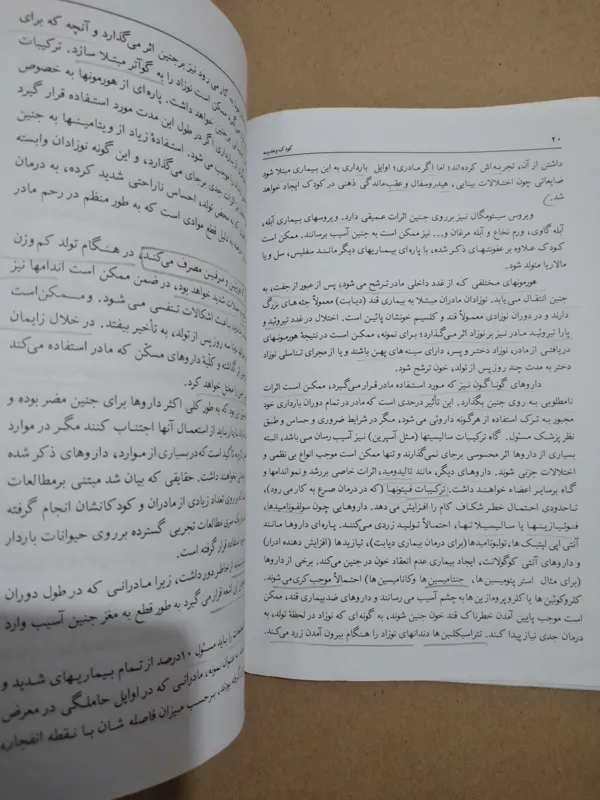 ۲۰
کودک و مدرسه
داشتن از آن، تجربه‌اش کرده‌اند؛ اما اگر مادری؛ اوایل بارداری به این بیماری مبتلا شود
ضایعاتی چون اختلالات بینایی، هیدروسفال و عقب‌ماندگی ذهنی در کودک ایجاد خواهد
شد.
ویروس سیتومگال نیز برروی جنین اثرات عمیقی دارد. ویروسهای بیماری آبله،
آبله گاوی، ورم نخاع و آبله مرغان و... نیز ممکن است به جنین آسیب برسانند. ممکن است
کودک علاوه بر عفونتهای ذکر شده، با پاره‌ای بیماریهای دیگر مانند سفلیس، سل و یا
مالاریا متولد شود.
هورمونهای مختلفی که از غدد داخلی مادر ترشح می شود، پس از عبور از جفت، به
جنین انتقال می‌یابد. نوزادان مادران مبتلا به بیماری قند (دیابت) معمولاً جثه های بزرگ
دارند و در دوران نوزادی معمولاً قند و کلسیم خونشان پائین است. اختلال در غدد تیروئید و
پارا تیروئید مادر نیز بر نوزاد اثر می‌گذارد؛ برای نمونه، ممکن است در نتیجۀ هورمونهای
دریافتی از مادر، نوزاد دختر و پسر، دارای سینه های پهن باشند و یا از مجرای تناسلی نوزاد
دختر به مدت چند روز پس از تولد، خون ترشح شود.
داروهای گوناگون نیز که مورد استفاده مادر قرار می‌گیرد، ممکن است اثرات
نامطلوبی به روی جنین بگذارد. این تأثیر درحدی است که مادر در تمام دوران بارداری خود
مجبور به ترک استفاده از هرگونه داروئی می شود، مگر در شرایط ضروری و حساس و طبق
نظر پزشک مسئول. گاه ترکیبات سالیسیتها (مثل آسپرین) نیز آسیب رسان می باشد، البته
بسیاری از داروها اثر محسوسی برجای نمی‌گذارند و تنها ممکن است موجب انواع بی نظمی و
اختلالات جزئی شوند. داروهای دیگر، مانند تالیدومید، اثرات خاصی بررشد و نمو اندامها و
گاه برسایر اعضاء خواهند داشت. ترکیبات فیتونها (که در درمان صرع به کار می رود)،
تاحدودی احتمال خطر شکاف کام را افزایش می دهد. داروهایی چون سولفونامیدها،
فنوتیازینها یا سالیسیلاتها، احتمالاً تولید زردی می‌کنند. پاره‌ای داروها مانند
آنتی اپی لپتیک‌ها، تولبوتامیدها (برای درمان بیماری دیابت)، تیازیدها (افزایش دهنده ادرار)
و داروهای آنتی کوگولانت، ایجاد بیماری عدم انعقاد خون در جنین می‌کند. برخی از داروها
(برای مثال استر پتومیسین ها، جنتامیسین‌ها وکانامیسین ها) احتمالاً موجب کری می شوند.
کلروکوئین ها یا کلروپرومازین ها به چشم آسیب می رسانند و داروهای ضدبیماری قند، ممکن
است موجب پایین آمدن خطرناک قند خون جنین شوند، به گونه‌ای که نوزاد در لحظۀ تولد، به
درمان جدی نیاز پیدا کند. تتراسیکلین‌ها دندانهای نوزاد را هنگام بیرون آمدن زرد می‌کند.
به کار می رود نیز برجنین اثر می‌گذارد و آنچه که برای
ممکن است نوزاد را به گواتر مبتلا سازد. ترکیبات
خواهد داشت. پاره‌ای از هورمونها به خصوص
اگر در طول این مدت مورد استفاده قرار گیرد
موجب می‌شود. استفادۀ زیاد از ویتامینها به جنین
اثرات جدی برجای می‌گذارد، و این گونه نوزادان وابسته
به محض تولد، احساس ناراحتی شدید کرده، به درمان
به دلیل قطع موادی است که به طور منظم در رحم مادر
و مرفین مصرف می‌کنند، در هنگام تولد کم وزن
شدید خواهد بود، در ضمن ممکن است اندامها نیز
باعث اشکالات تنفسی می شود. و ممکن است
سه روز پس از تولد، به تأخیر بیفتد. در خلال زایمان
گذشته و کلّیۀ داروهای مسکّن که مادر استفاده می‌کند
خواهد کرد.
این بود که به طور کلی اکثر داروها برای جنین مضر بوده و
باید از استعمال آنها اجتناب کنند مگر در موارد
تأکید است که دربسیاری از موارد، داروهای ذکر شده
نخواهند داشت. حقایقی که بیان شد مبتنی برمطالعات
برروی تعداد زیادی از مادران و کودکانشان انجام گرفته
سری مطالعات تجربی گسترده برروی حیوانات باردار
استفاده قرار گرفته است.
خاطر دور داشت، زیرا مادرانی که در طول دوران
اشعه قرار می گیرد به طور قطع به مغز جنین آسیب وارد
را نباید مسئول ۱۰درصد از تمام بیماریهای شدید و
به عنوان نمونه، مادرانی که در اوایل حاملگی در معرض
بودند، برحسب میزان فاصله شان با نقطه انفجار